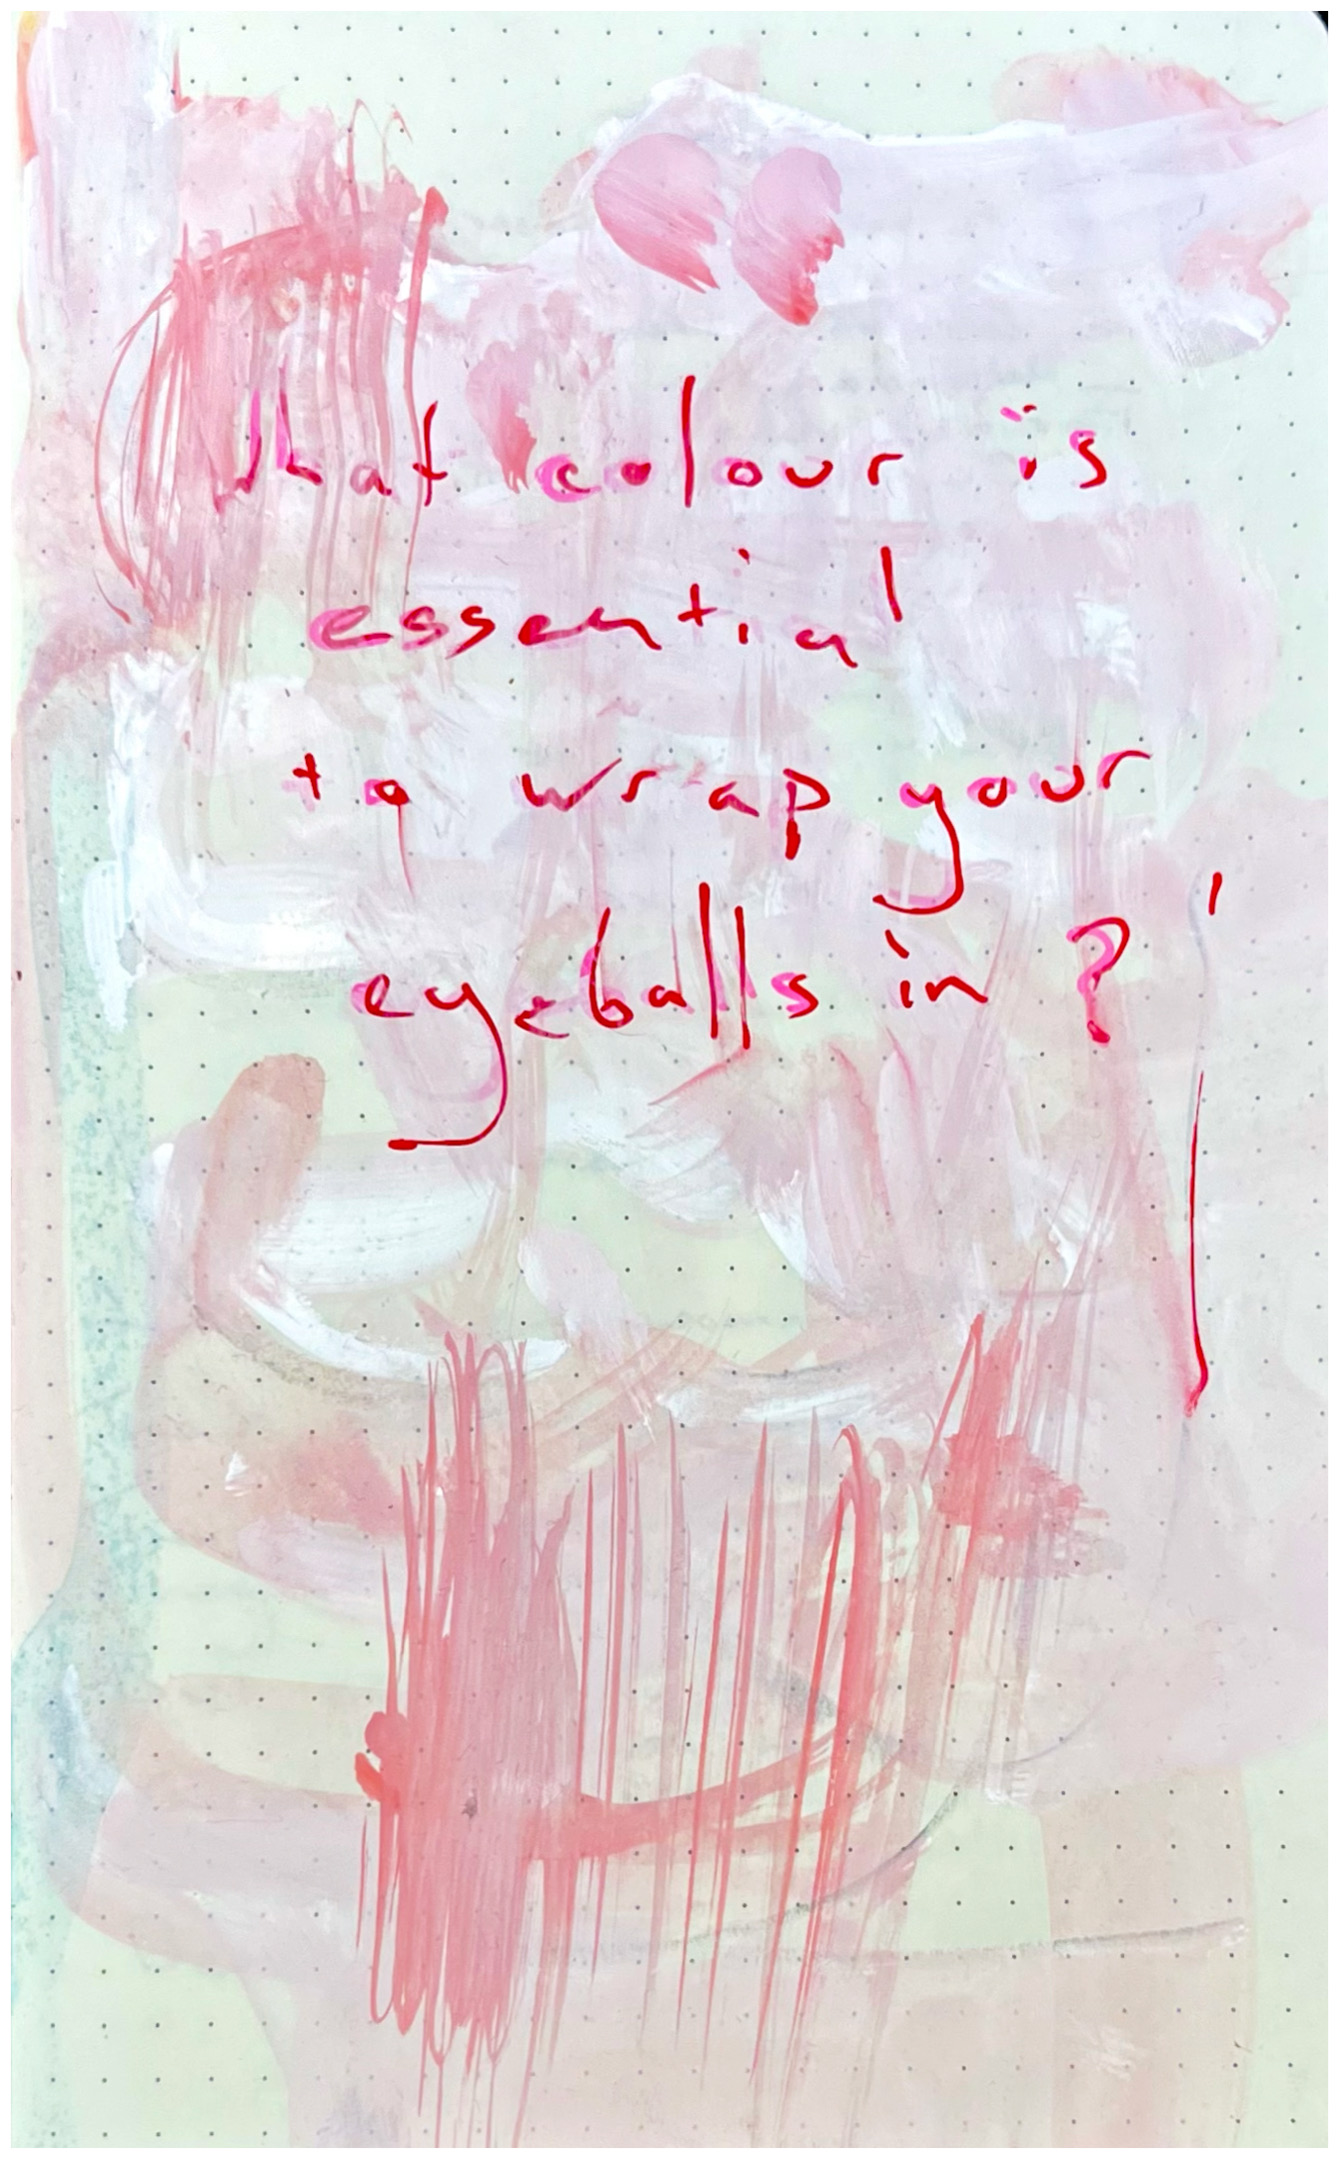 what colour is
essential
to wrap your
eyeballs in?